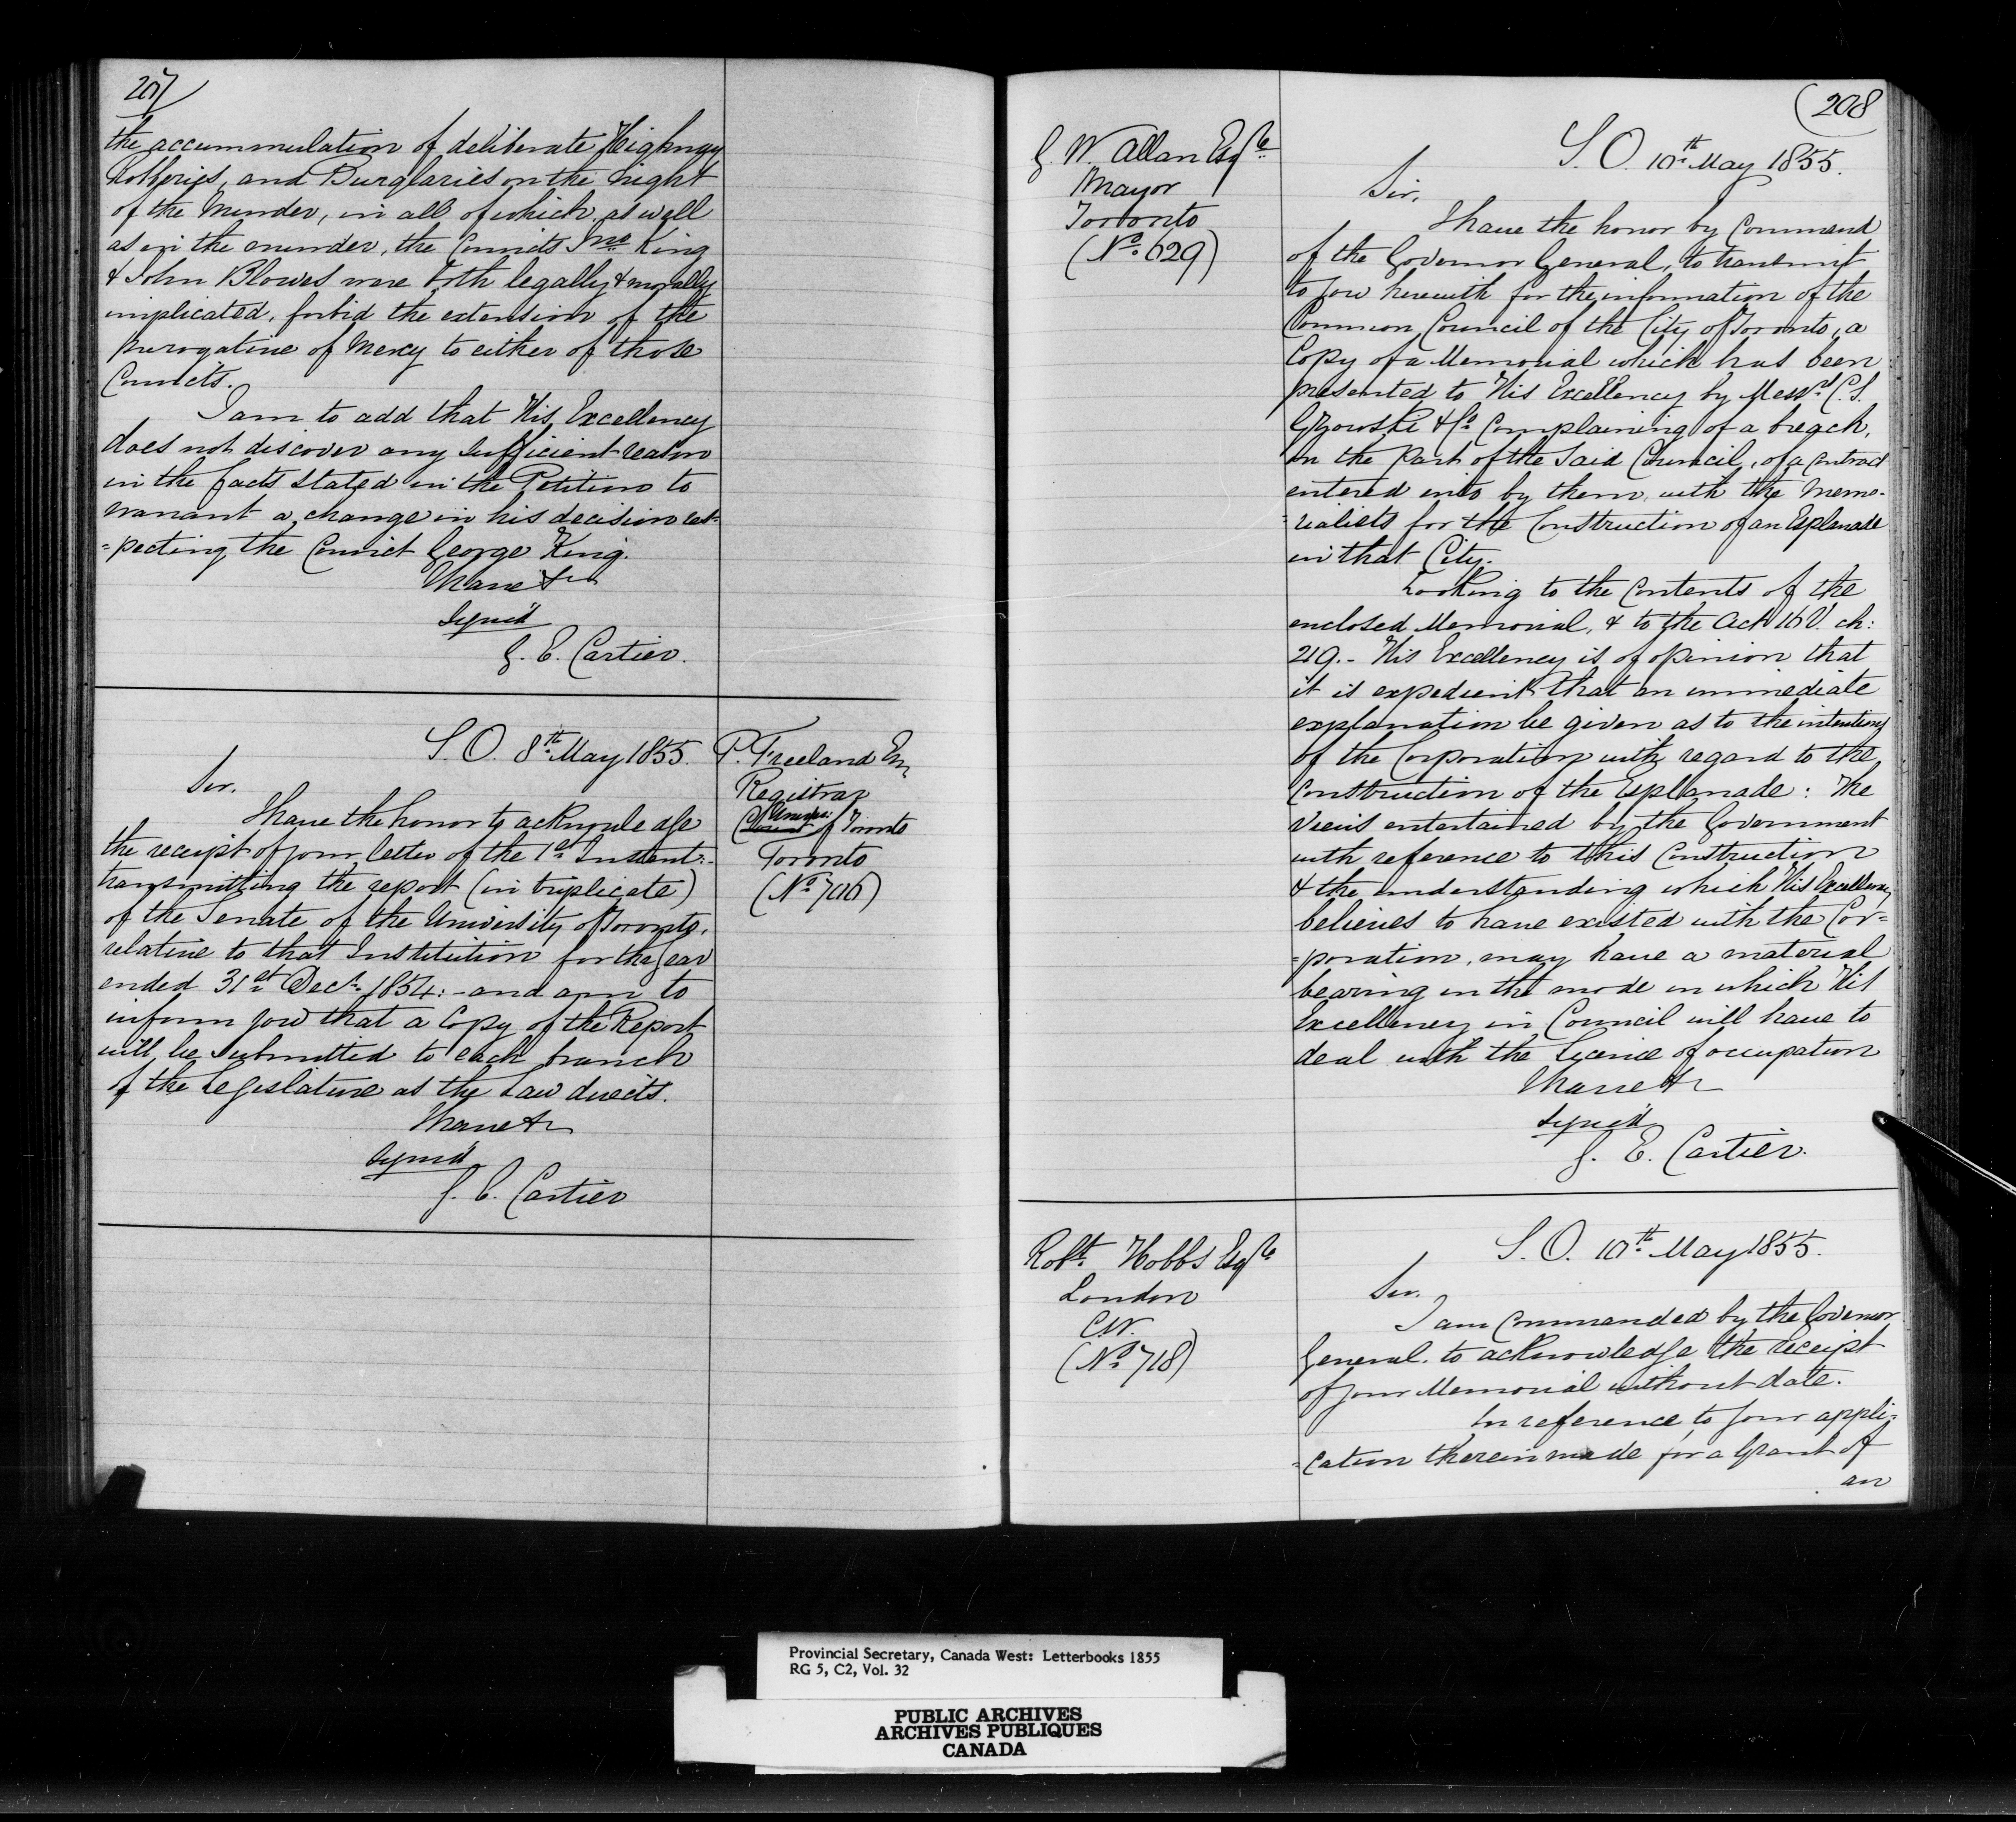 207
the accummulation of deliberate Highway
Robberies, and Burglaries on the night
of the Murder, in all of which, as well
as in the murder, the Convicts Jno King
& John Blowes were both legally & morally
implicated, forbid the extension of the
prerogative of Mercy to either of those
Convicts.
I am to add that His Excellency
does not discover any sufficient reason
in the facts stated in the Petition to
warrant a change in his decision res-
=pecting the Convict George King.
I have &c
Signed
G. E. Cartier.
S. O. 8th May 1855.
P. Freeland Esq
Registrar
Univy: of Toronto
Toronto
(No 706)
Sir,
I have the honor to acknowledge
the receipt of your letter of the 1st Instant:
transmitting the report (in triplicate)
of the Senate of the University of Toronto,
relative to that Institution for the year
ended 31st Decr. 1854: - and am to
inform you that a Copy of the Report
will be submitted to each branch
of the Legislature as the Law directs.
I have &c
Signed
G. E. Cartier
208
G. W. Allan Esqre
Mayor
Toronto
(No. 629)
S. O. 10th May 1855.
Sir,
I have the honor by Command
of the Governor General, to transmit
to you herewith for the information of the
Common Council of the City of Toronto, a
Copy of a Memorial which has been
presented to His Excellency by Messrs C. S.
Gzowski & Co. Complaining of a breach,
on the part of the said Council, of a contract
entered into by them with the Memo-
=rialists for the Construction of an Esplanade
in that City.
Looking to the Contents of the
enclosed Memorial, & to the Act 16 V. ch:
219. - His Excellency is of opinion that
it is expedient that an immediate
explanation be given as to the intentions
of the Corporation with regard to the
Construction of the Esplanade: The
views entertained by the Government
with reference to this Construction
& the understanding which His Excellency
believes to have existed with the Cor=
=poration, may have a material
bearing on the mode in which His
Excellency in Council will have to
deal with the licence of occupation
I have &c
Signed
G. E. Cartier.
Robt. Hobbs Esqre
London
C.W.
(No. 718)
S. O. 10th May 1855.
Sir,
I am Commanded by the Governor
General, to acknowledge the receipt
of your Memorial without date.
In reference to your appli-
=cation therein made for a Grant of
an
Provincial Secretary, Canada West: Letterbooks 1855
RG 5, C2, Vol. 32
PUBLIC ARCHIVES
ARCHIVES PUBLIQUES
CANADA